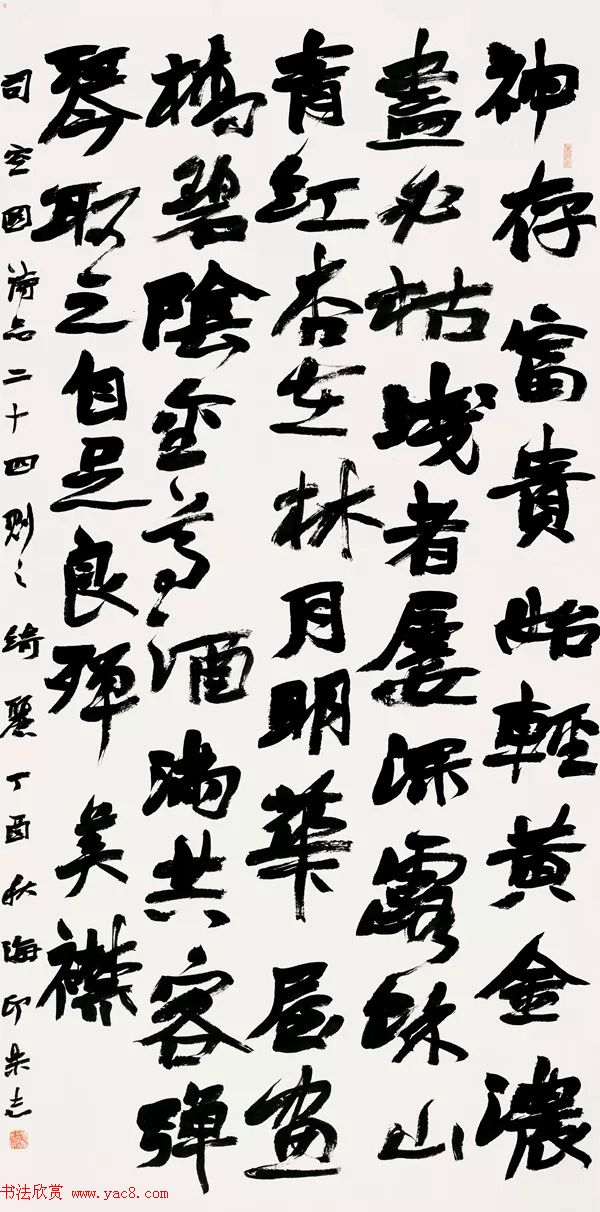 神存富貴始輕黃金濃
盡必枯淺者屢深露餘山
青紅杏在林月明華屋畫
橋碧陰金尊酒滿共客彈
琴取之自足良殫美襟
司空圖詩品二十四則之綺麗丁酉秋海印朱志
书法欣赏 www.yac8.com